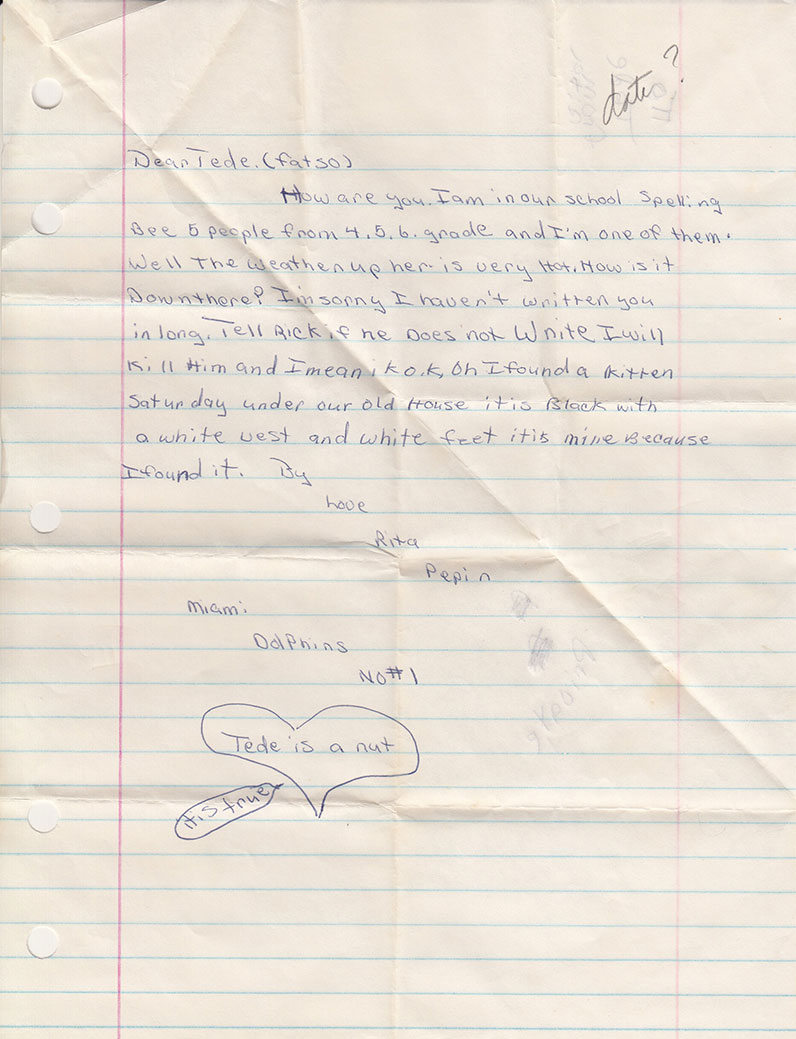 date ?
Dear Tede. (fatso)
How are you. I am in our school Spelling
Bee 5 people from 4. 5. 6. grade and I'm one of them.
Well The weather up her. is very Hot. How is it
Down there? I'm sorry I haven't written you
in long. Tell Rick if he Does not Write I will
Kill Him and I mean i k o.k, Oh I found a kitten
Saturday under our old House it is Black with
a white vest and white feet it is mine Because
I found it. By
Love
Rita
Pepin
Miami
Dolphins
No # 1
Tede is a nut
it's true